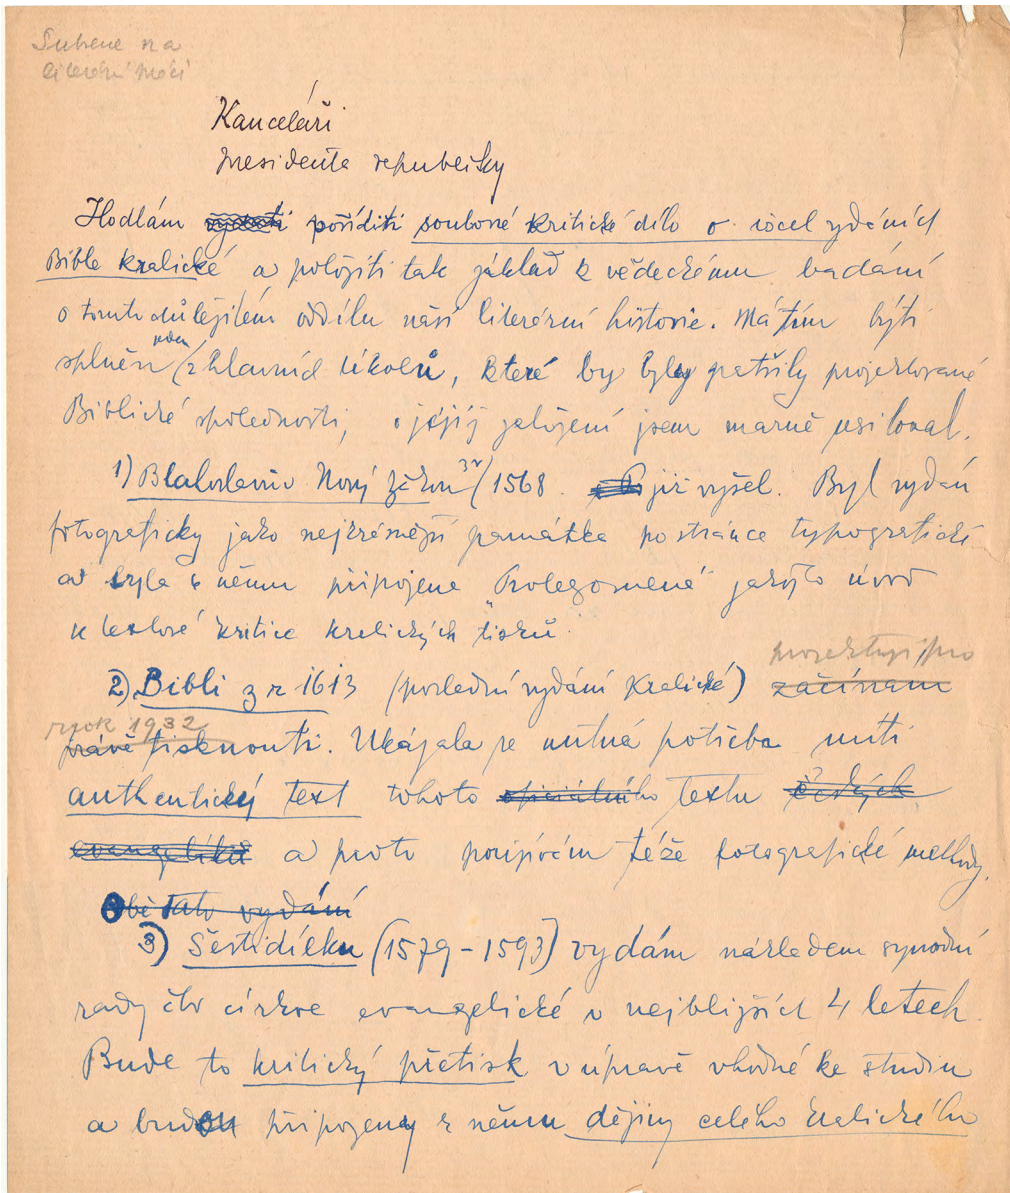 Kanceláři
presidenta republiky
Hodlám vydati poříditi souborné kritické dílo o vydáních
Bible kralické a položiti tak základ k vědeckému badání
o tomto důležitém oddílu naší literární historie. Má tím býti
splněn z hlavních úkolů, které by byly patřily projektované
Biblické společnosti, o jejíž založení jsem marně usiloval.
1) Blahoslavův Nový zákon z r. 1568 již vyšel. Byl vydán
fotograficky jako nejkrásnější památka po stránce typografické
a byla k němu připojena "Prolegomena" jakýžto úvod
k textové kritice kralických tisků.
projektuji pro
2) Bibli z r 1613 (poslední vydání Kralické) začínam
rok 1932
právě tisknouti. Ukázala se nutná potřeba míti
authentický text tohoto oficiálního textu českých
evangelíků a proto použivám téže fotografické methody.
Obě tato vydání
3) Šestidílku (1579-1593) vydám nákladem synodní
rady čbr církve evangelické v nejbližších 4 letech.
Bude to kritický přetisk v úpravě vhodné ke studiu
a budou připojeny k němu dějiny celého kralického